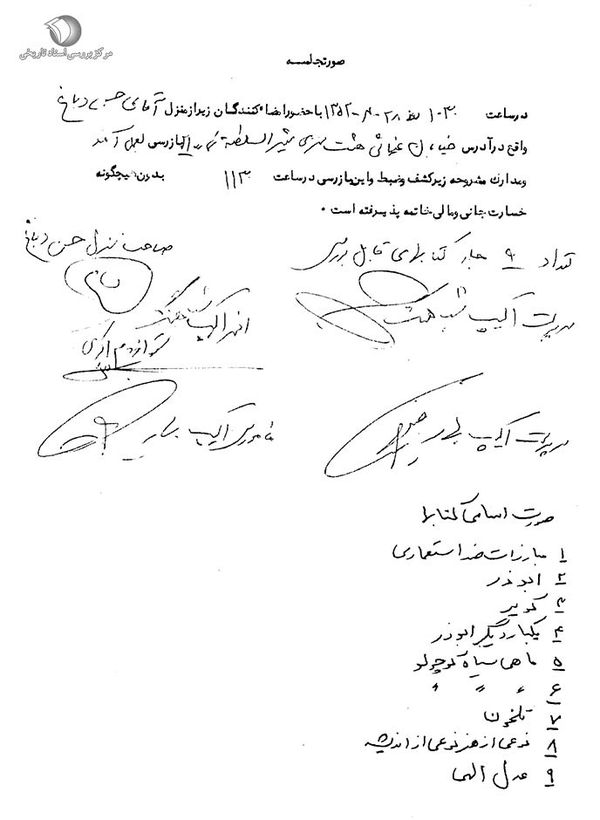 مرکز بررسی اسناد تاریخی
صورتجلسه
در ساعت ۱۰۳۰ روز ۲۸-۴-۱۳۵۲ با حضور امضاء کنندگان زیر از منزل آقای حسن دباغ
واقع در آدرس خیابان هشت متری مشیر السلطنه بازرسی بعمل آمد
و مدارک مشروحه زیر کشف و ضبط و این بازرسی در ساعت ۱۱۳۰ بدون هیچگونه
خسارت جانی و مالی خاتمه پذیرفته است .
صاحب منزل حسن دباغ
تعداد ۹ جلد کتابهای قابل بررسی
سرپرست اکیپ هشت
افسر اکیپ
سرپرست اکیپ
مامور اکیپ
صورت اسامی کتابها
۱ مبارزات ضد استعماری
۲ ابوذر
۳ کویر
۴ یکبار دیگر ابوذر
۵ ماهی سیاه کوچولو
۶ " " "
۷ تلخون
۸ نوعی از هنر نوعی از اندیشه
۹ عدل الهی